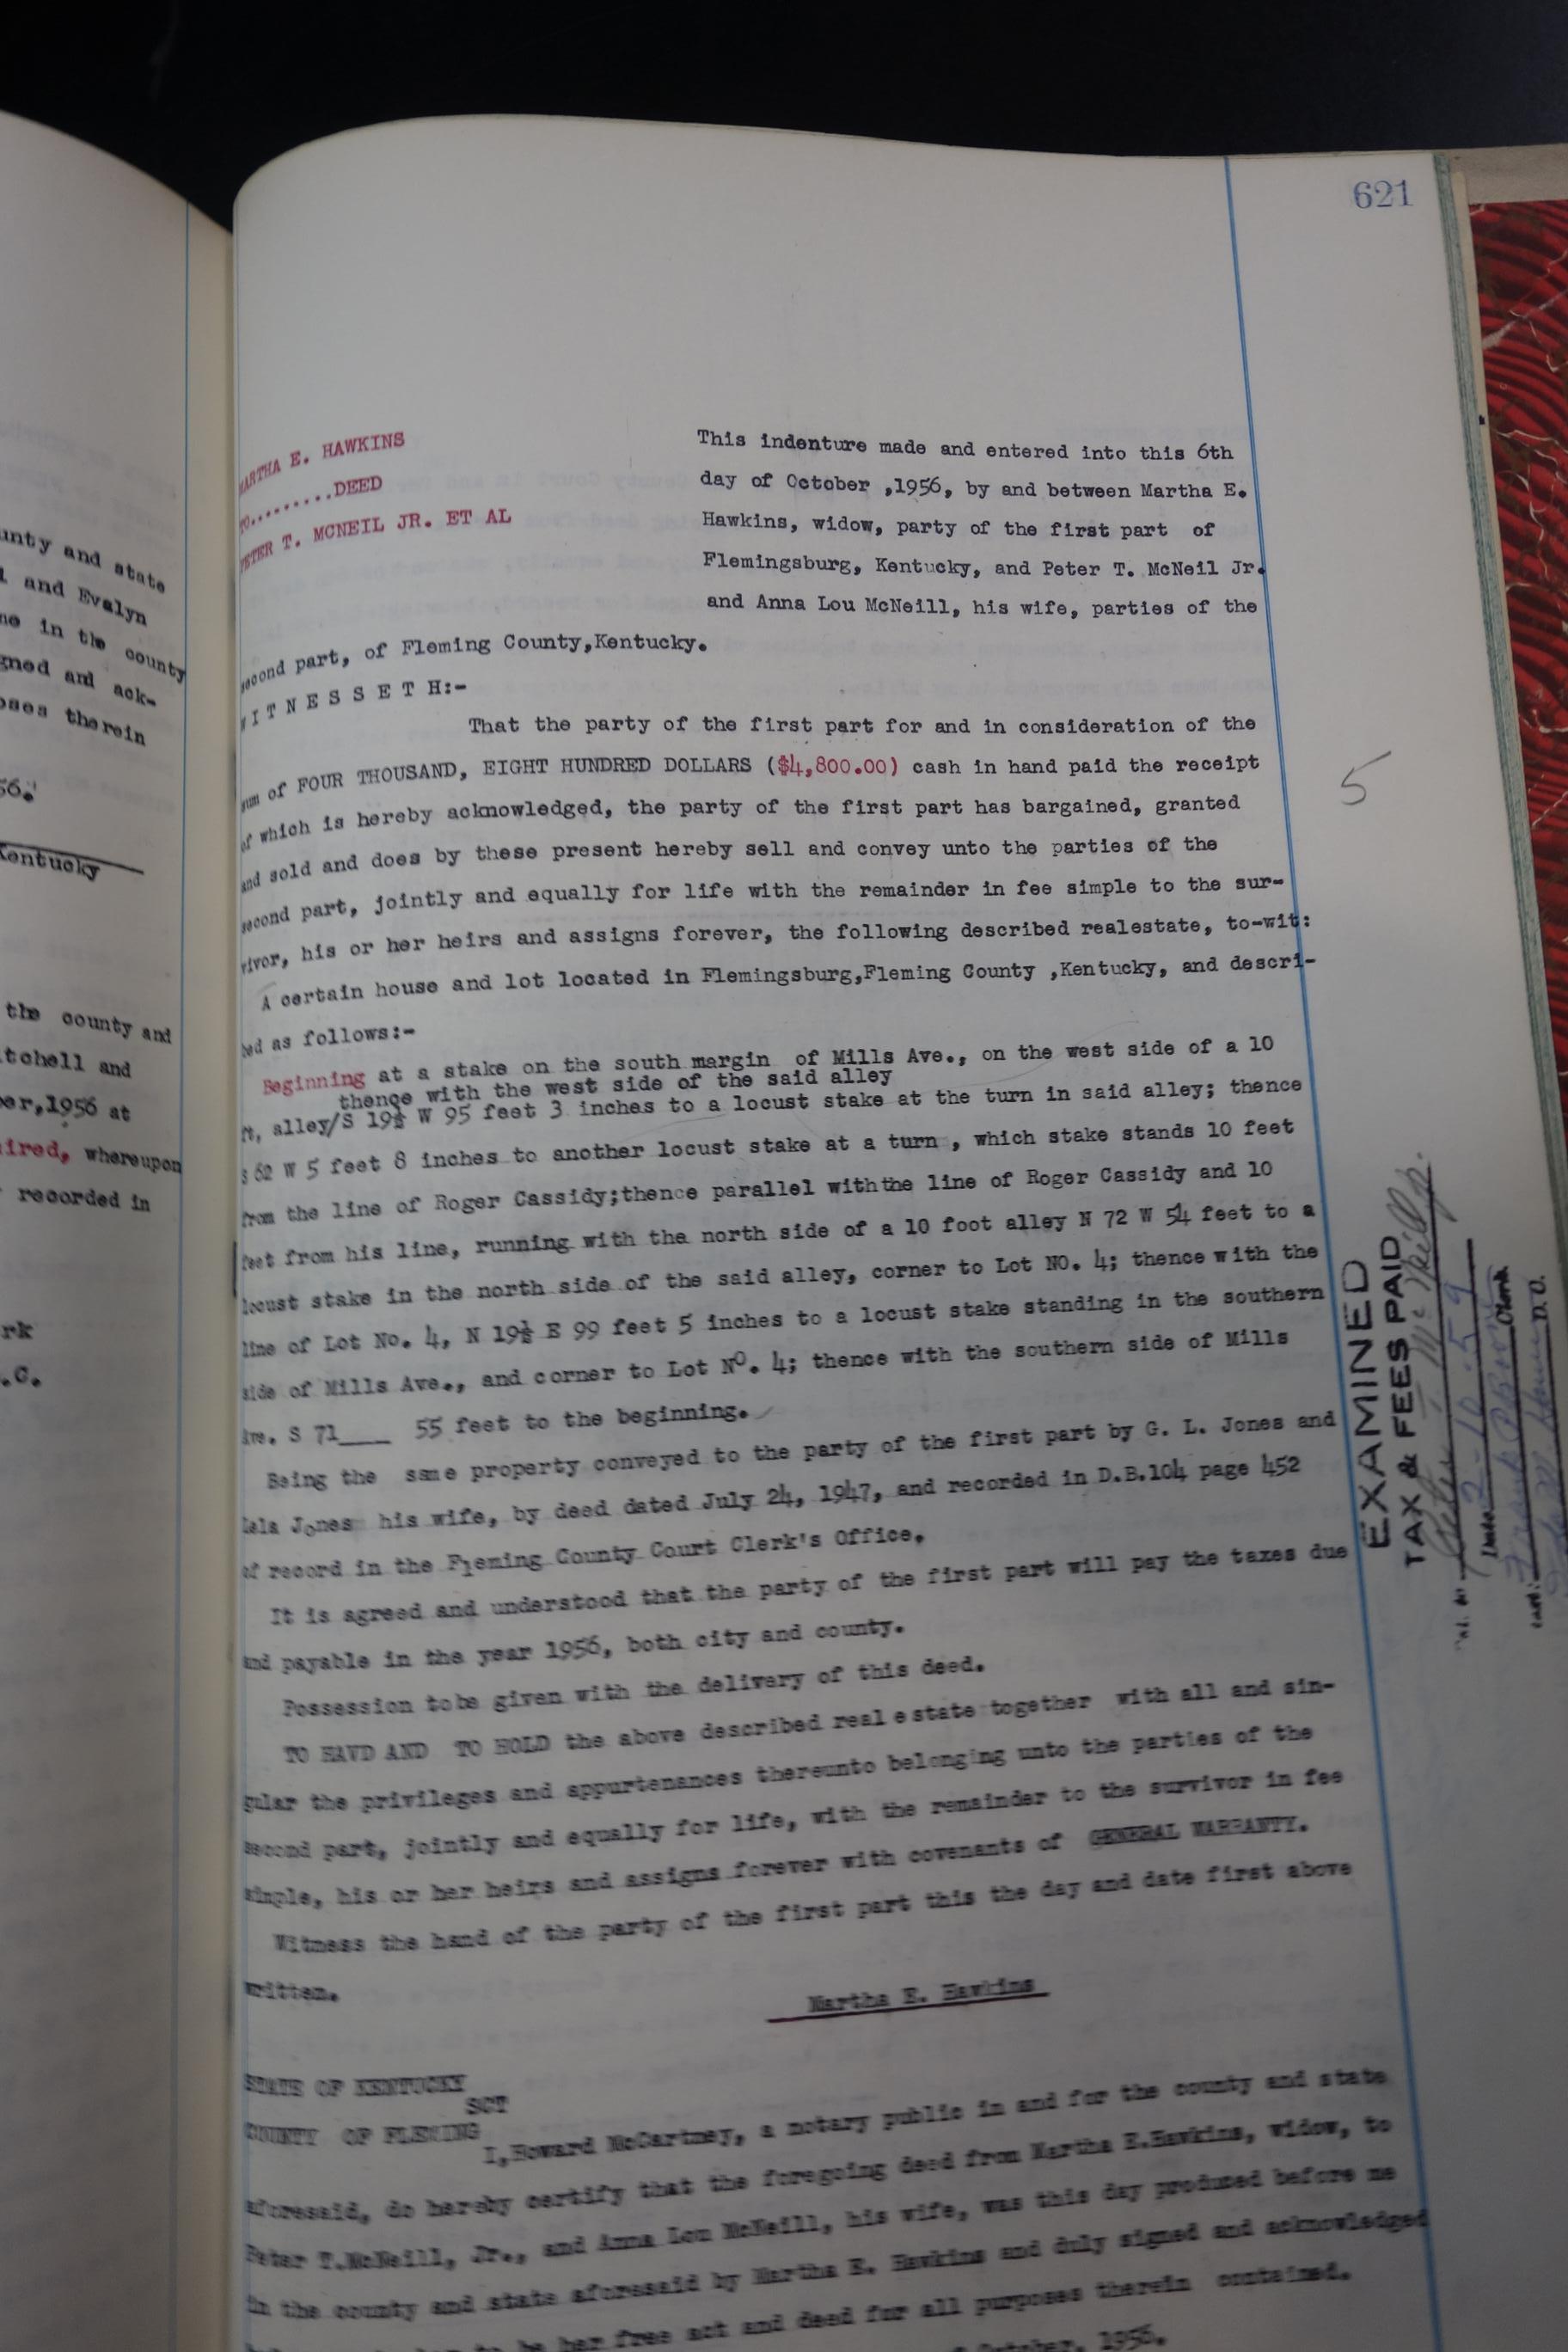 621
unty and state
and Evalyn
in the county
gned and ack-
oses therein
56.
Kentucky
the county and
tchell and
ber,1956 at
ired, whereupon
recorded in
rk
.C.
MARTHA E. HAWKINS
TO.........DEED
PETER T. MCNEIL JR. ET AL
This indenture made and entered into this 6th
day of October ,1956, by and between Martha E.
Hawkins, widow, party of the first part of
Flemingsburg, Kentucky, and Peter T. McNeil Jr.
and Anna Lou McNeill, his wife, parties of the
second part, of Fleming County,Kentucky.
W I T N E S S E T H:-
That the party of the first part for and in consideration of the
sum of FOUR THOUSAND, EIGHT HUNDRED DOLLARS ($4,800.00) cash in hand paid the receipt
of which is hereby acknowledged, the party of the first part has bargained, granted
and sold and does by these present hereby sell and convey unto the parties of the
second part, jointly and equally for life with the remainder in fee simple to the sur-
vivor, his or her heirs and assigns forever, the following described realestate, to-wit:
A certain house and lot located in Flemingsburg,Fleming County ,Kentucky, and descri-
bed as follows:-
Beginning at a stake on the south margin of Mills Ave., on the west side of a 10
thence with the west side of the said alley
ft, alley/S 19½ W 95 feet 3 inches to a locust stake at the turn in said alley; thence
S 62 W 5 feet 8 inches to another locust stake at a turn , which stake stands 10 feet
from the line of Roger Cassidy;thence parallel withthe line of Roger Cassidy and 10
feet from his line, running with the north side of a 10 foot alley N 72 W 54 feet to a
locust stake in the north side of the said alley, corner to Lot NO. 4; thence with the
line of Lot No. 4, N 19½ E 99 feet 5 inches to a locust stake standing in the southern
side of Mills Ave., and corner to Lot NO. 4; thence with the southern side of Mills
Ave. S 71___ 55 feet to the beginning.
Being the same property conveyed to the party of the first part by G. L. Jones and
Lela Jones his wife, by deed dated July 24, 1947, and recorded in D.B.104 page 452
of record in the Fleming County Court Clerk's Office.
It is agreed and understood that the party of the first part will pay the taxes due
and payable in the year 1956, both city and county.
Possession tobe given with the delivery of this deed.
TO HAVD AND TO HOLD the above described real estate together with all and sin-
gular the privileges and appurtenances thereunto belonging unto the parties of the
second part, jointly and equally for life, with the remainder to the survivor in fee
simple, his or her heirs and assigns forever with covenants of GENERAL WARRANTY.
Witness the hand of the party of the first part this the day and date first above
written.
Martha E. Hawkins
STATE OF KENTUCKY
SCT
COUNTY OF FLEMING
I,Howard McCartney, a notary public in and for the county and state
aforesaid, do hereby certify that the foregoing deed from Martha E.Hawkins, widow, to
Peter T.McNeill, Jr., and Anna Lou McNeill, his wife, was this day produced before me
in the county and state aforesaid by Martha E. Hawkins and duly signed and acknowledged
to be her free act and deed for all purposes therein contained.
October, 1956.
5
EXAMINED
TAX & FEES PAID
McNeill Jr.
Date 2-10-59
Clerk
D.C.